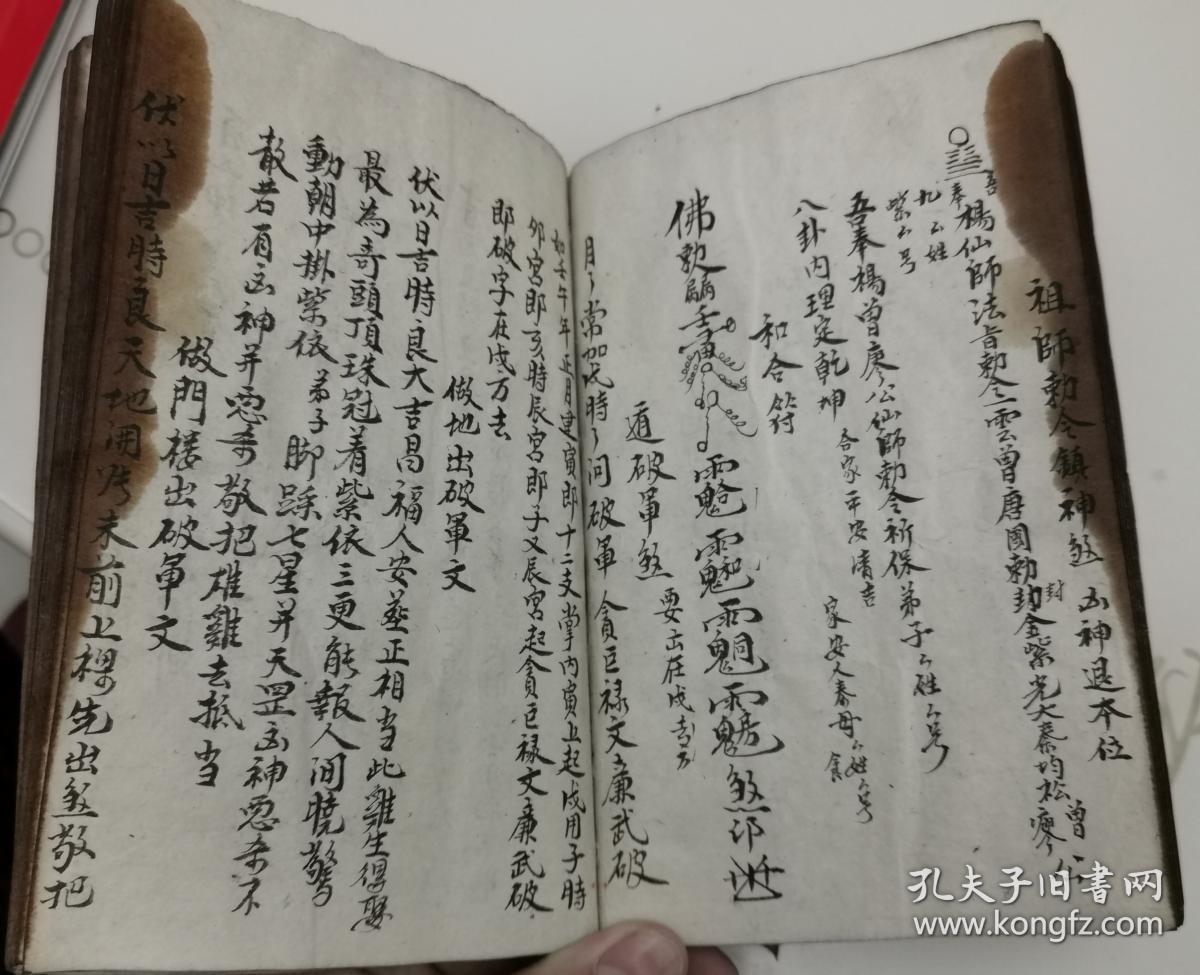 祖師勅令鎮神煞 凶神退本位
吾奉楊仙師法旨勅令雲曾唐國勅封金紫光大泰均松廖曾公
九厶姓
紫厶号
吾奉楊曾廖公仙師勅令祈保弟子厶姓厶号
八卦内理定乾坤 合家平安清吉 家安人泰母厶姓厶号
和合
佛勅 煞印
遁破軍煞 要出在戌方
月月常加戌時時问破軍 貪巨禄文廉武破
如壬午年正月建寅即十二支掌内寅上起戌用子時
卯宮即亥時辰宮即子又辰宮起貪巨禄文廉武破
即破字在戌方去
做地出破軍文
伏以日吉時良大吉昌福人安葬正相当此雞生得
最為奇頭頂珠冠着紫依三更能報人间曉驚
動朝中掛紫依弟子脚踩七星并天罡凶神悪杀不
散若有凶神并悪杀敬把雄雞去抵当
做門楼出破軍文
伏以日吉時良天地開 未前上樑先出煞敬把
孔夫子旧書网
www.kongfz.com